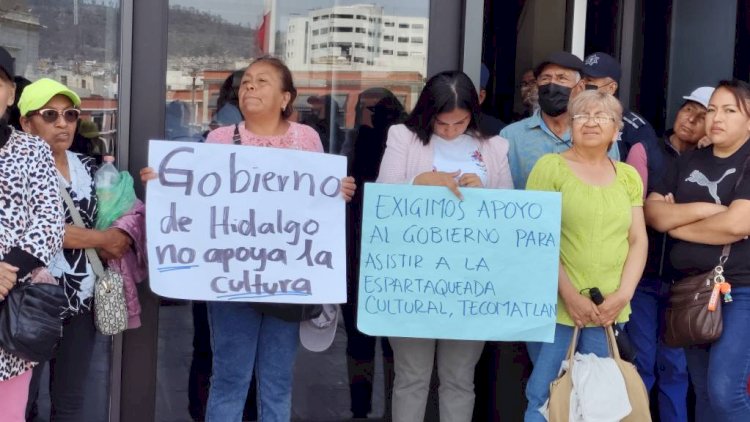 Gobierno
de Hidalgo
no apoya la
cultura
EXIGIMOS APOYO
AL GOBIERNO PARA
ASISTIR A LA
ESPARTAQUEADA
CULTURAL, TECOMATLAN